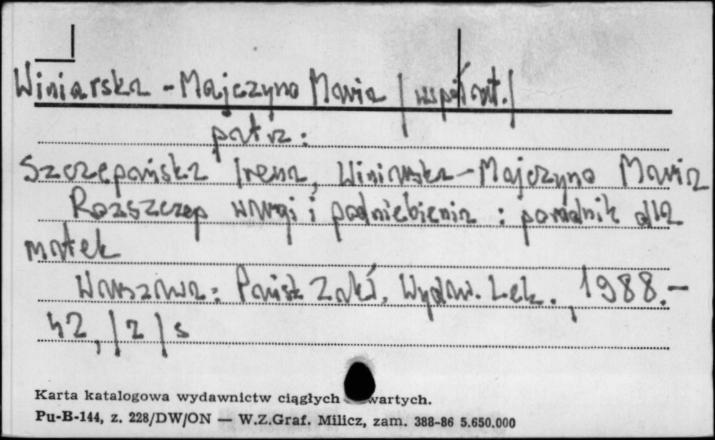 Winiarska-Majczyno Maria /współaut./
patrz:
Szczepańska Irena, Winiarska-Majczyno Maria
Rozszczep wargi i podniebienia : poradnik dla
matek
Warszawa: Państ. Zakł. Wydaw. Lek., 1988.-
42, /2/ s
Karta katalogowa wydawnictw ciągłych wartych.
Pu-B-144, z. 228/DW/ON — W.Z.Graf. Milicz, zam. 388-86 5.650.000